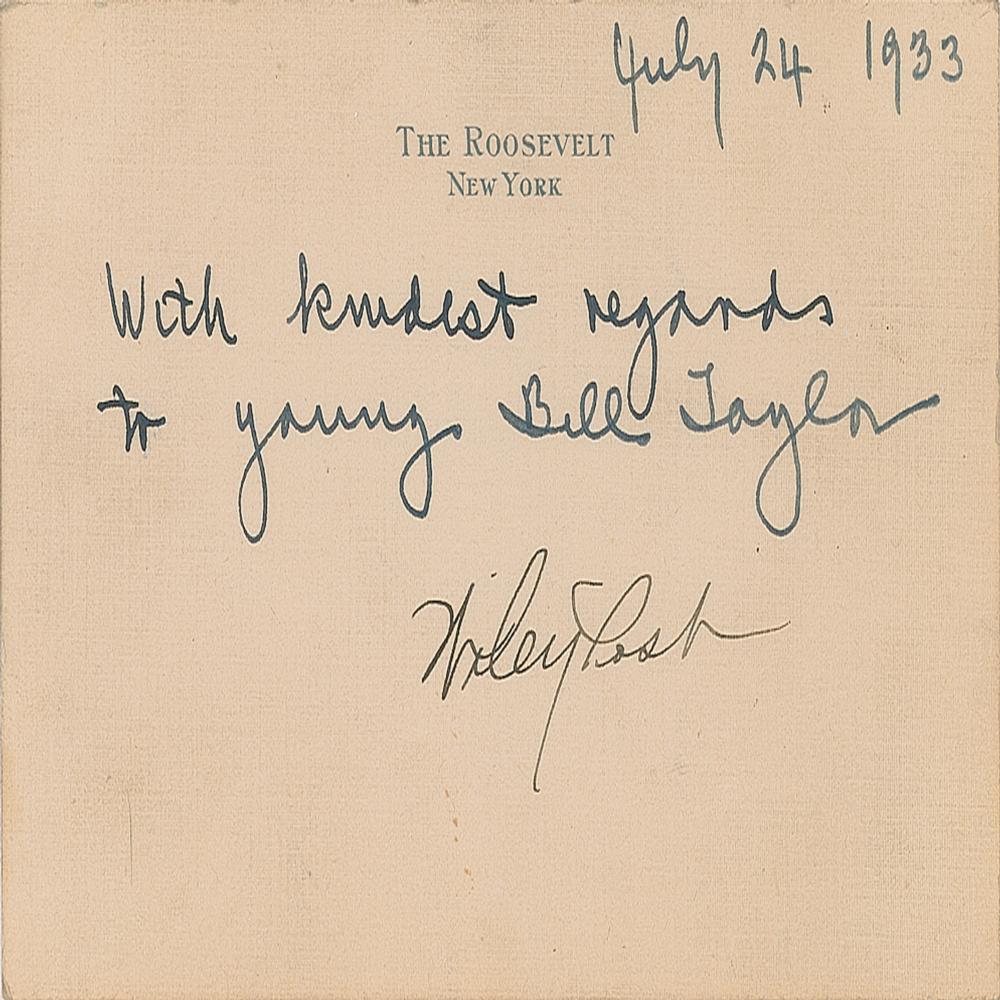 July 24 1933
THE ROOSEVELT
NEW YORK
With kindest regards
to young Bill Taylor
Wiley Post